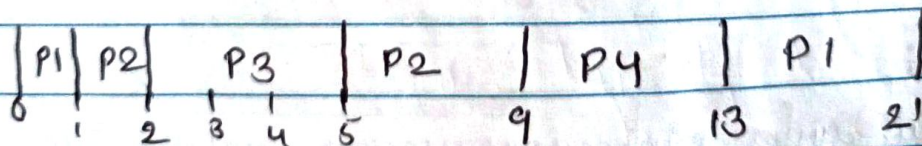 P1 P2 P3 P2 P4 P1
0 1 2 3 4 5 9 13 21